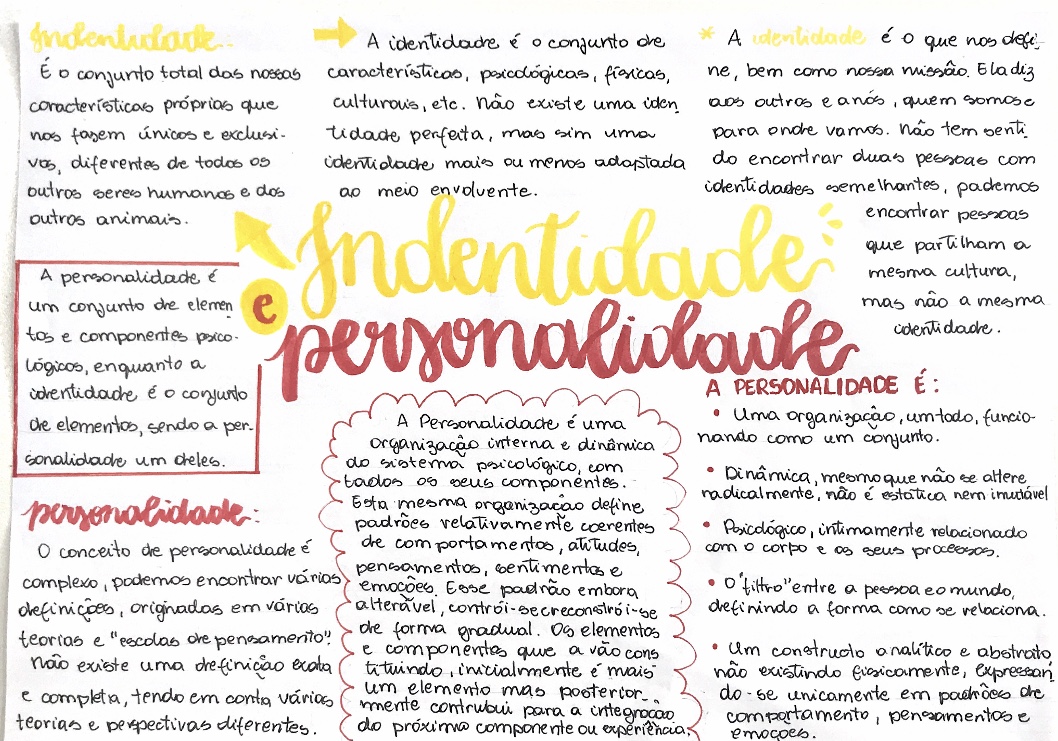 Indentidade:
É o conjunto total das nossas
características próprias que
nos fazem únicos e exclusi-
vos, diferentes de todos os
outros seres humanos e dos
outros animais.
A identidade é o conjunto de
características, psicológicas, físicas,
culturais, etc. Não existe uma iden
tidade perfeita, mas sim uma
identidade mais ou menos adaptada
ao meio envolvente.
* A identidade é o que nos defi-
ne, bem como nossa missão. Ela diz
aos outros e a nós, quem somos e
para onde vamos. Não tem senti
do encontrar duas pessoas com
identidades semelhantes, podemos
encontrar pessoas
que partilham a
mesma cultura,
mas não a mesma
identidade.
Indentidade
e
personalidade
A personalidade é
um conjunto de elemen
tos e componentes psico-
lógicos, enquanto a
identidade é o conjunto
de elementos, sendo a per-
sonalidade um deles.
personalidade:
O conceito de personalidade é
complexo, podemos encontrar vários
definições, originadas em várias
teorias e "escolas de pensamento".
Não existe uma definição exata
e completa, tendo em conta várias
teorias e perspectivas diferentes.
A Personalidade é uma
organização interna e dinâmica
do sistema psicológico, com
todos os seus componentes.
Esta mesma organização define
padrões relativamente coerentes
de comportamentos, atitudes,
pensamentos, sentimentos e
emoções. Esse padrão embora
alterável, contrói-se e reconstrói-se
de forma gradual. Os elementos
e componentes que a vão cons
tituindo, inicialmente é mais
um elemento mas posterior-
mente contribui para a integração
do próximo componente ou experiência.
A PERSONALIDADE É:
• Uma organização, um todo, funcio-
nando como um conjunto.
• Dinâmica, mesmo que não se altere
radicalmente, não é estática nem imutável
• Psicológico, intimamente relacionado
com o corpo e os seus processos.
• O "filtro" entre a pessoa e o mundo,
definindo a forma como se relaciona.
• Um constructo analítico e abstrato
não existindo fisicamente, expressan
do-se unicamente em padrões de
comportamento, pensamentos e
emoções.